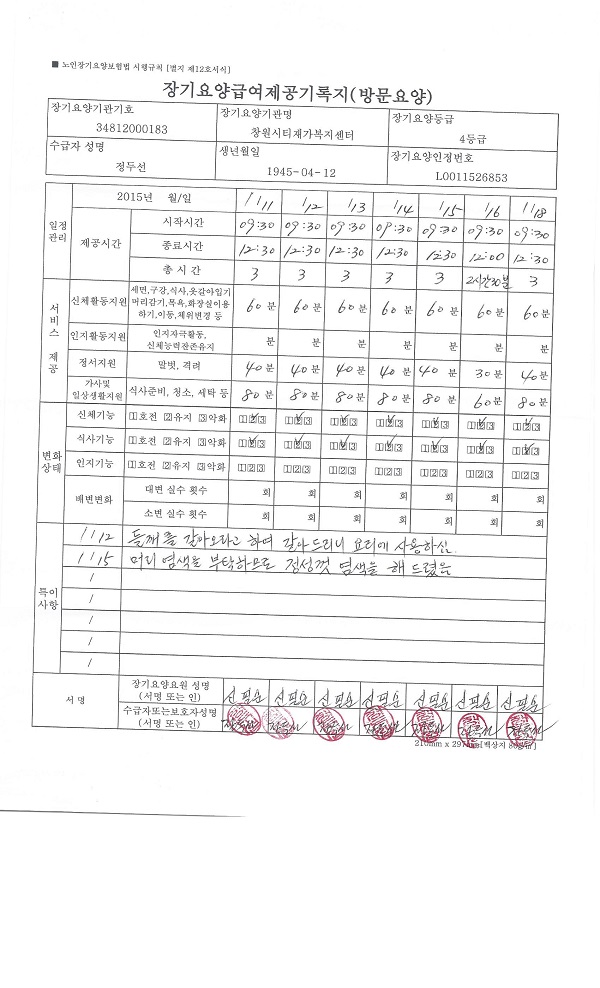 ■ 노인장기요양보험법 시행규칙 [별지 제12호서식]
장기요양급여제공기록지(방문요양)
장기요양기관기호 장기요양기관명 장기요양등급
34812000183 창원시티재가복지센터 4등급
수급자 성명 생년월일 장기요양인정번호
정두선 1945-04-12 L0011526853
일정관리 2015년 월/일 1/11 1/12 1/13 1/14 1/15 1/16 1/18
제공시간 시작시간 09:30 09:30 09:30 09:30 09:30 09:30 09:30
종료시간 12:30 12:30 12:30 12:30 12:30 12:00 12:30
총 시간 3 3 3 3 3 2시간30분 3
서비스 제공 신체활동지원 세면,구강,식사,옷갈아입기
머리감기,목욕,화장실이용
하기,이동,체위변경 등 60분 60분 60분 60분 60분 60분 60분
인지활동지원 인지자극활동,
신체능력잔존유지 분 분 분 분 분 분 분
정서지원 말벗, 격려 40분 40분 40분 40분 40분 30분 40분
가사및
일상생활지원 식사준비, 청소, 세탁 등 80분 80분 80분 80분 80분 60분 80분
변화상태 신체기능 1호전 2유지 3악화 123 123 123 123 123 123 123
식사기능 1호전 2유지 3악화 123 123 123 123 123 123 123
인지기능 1호전 2유지 3악화 123 123 123 123 123 123 123
배변변화 대변 실수 횟수 회 회 회 회 회 회 회
소변 실수 횟수 회 회 회 회 회 회 회
특이사항
1/12 들깨를 갈아오라고 하며 갈아드리니 요리에 사용하심
1/15 머리염색을 부탁하므로 정성껏 염색을 해 드렸음
/
/
/
/
서 명 장기요양요원 성명
(서명 또는 인) 신필순 신필순 신필순 신필순 신필순 신필순 신필순
수급자또는보호자성명
(서명 또는 인)
210mm x 297mm[백상지 80g/㎡]